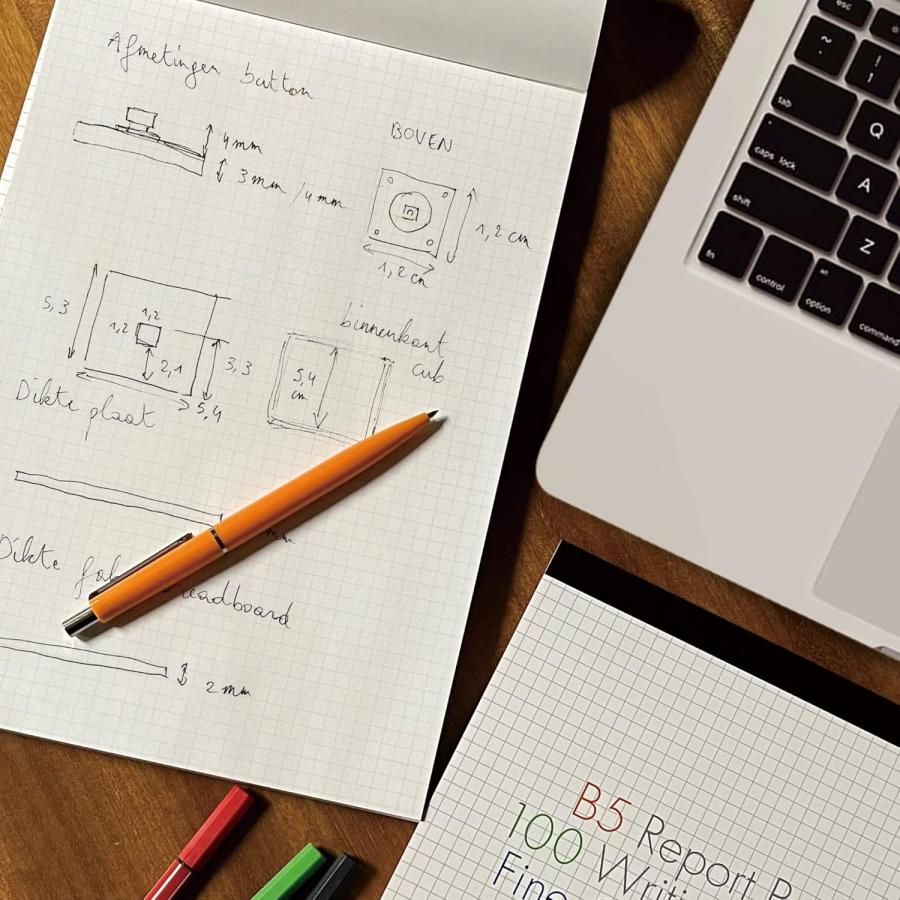 Afmetingen button
4mm
3mm /4mm
BOVEN
1,2 cm
1,2 cm
5,3
1,2
1,2
2,1
3,3
5,4
Dikte plaat
binnenkant
cub
5,4
cm
mm
Dikte
2 mm
esc
~
!
1
tab
Q
caps lock
A
shift
Z
fn
control
alt
option
command
B5 Report P
100 Writi
Fine